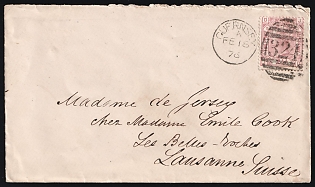 GUERNSEY
A
FE 16
76
324
Madame de Jersey
chez Madame Emile Cook
Les Belles-Roches
Lausanne
Suisse